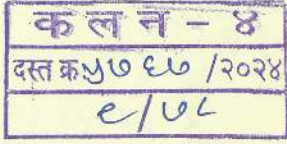 क ल न - ४
दस्त क्र.५७६७ /२०२४
९/७८